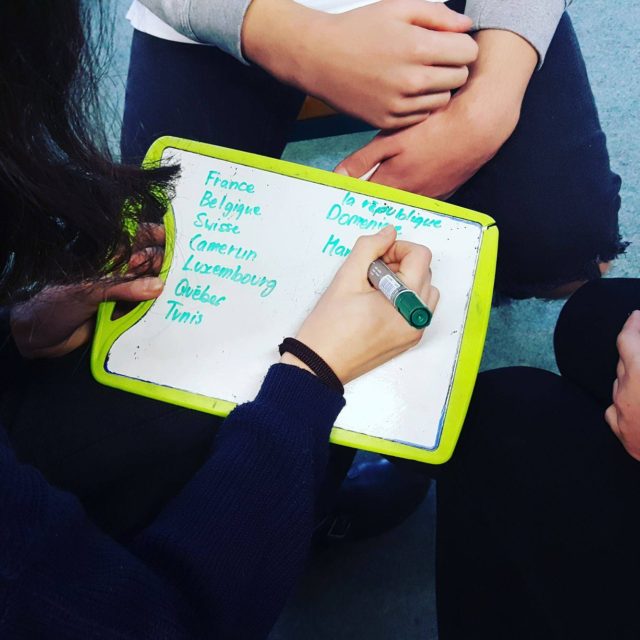 France
Belgique
Suisse
Camerun
Luxembourg
Québec
Tunis
la république